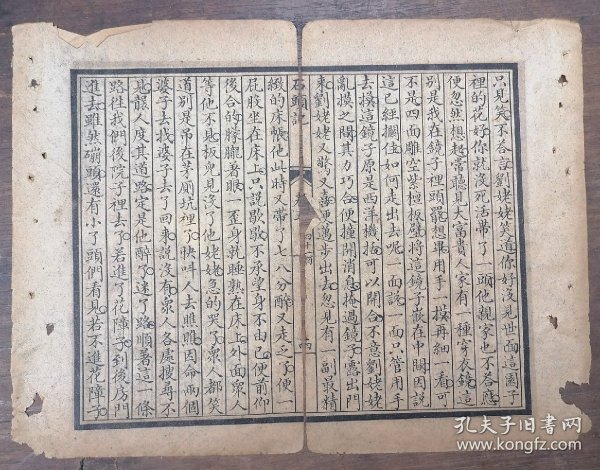 只見笑不答言劉姥姥笑道你好沒見世面這園子
裡的花好你就沒死活帶了一頭他親家也不答應
便忽然想起常聽見大富貴人家有一種穿衣鏡這
別是我在鏡子裡頭罷想畢用手一摸再細一看可
不是四面雕空紫檀板壁將這鏡子嵌在中間因說
這已經攔住如何走出去呢一面說一面只管用手
去摸這鏡子原是西洋機括可以開合不意劉姥姥
亂摸之間其力巧合便撞開消息掩過鏡子露出門
來劉姥姥又驚又喜便邁步出去忽見有一副最精
石頭記
四十一回
四
緻的床帳他此時又帶了七八分醉又走乏了便一
屁股坐在床上只說歇歇不承望身不由己便前仰
後合的朦朧着眼一歪身就睡熟在床上外面眾人
等他不見板兒見沒了他姥姥急的哭了眾人都笑
道別是吊在茅廁坑裡了快叫人去瞧瞧因命兩個
婆子去找婆子去了回來說沒有眾人各處搜尋不
見襲人度其道路定是他醉了迷了路順著這一條
路往我們後院子裡去了若進了花障子到後房門
進去雖然磞頭還有小丫頭們看見若不進花障子
孔夫子旧书网
www.kongfz.com